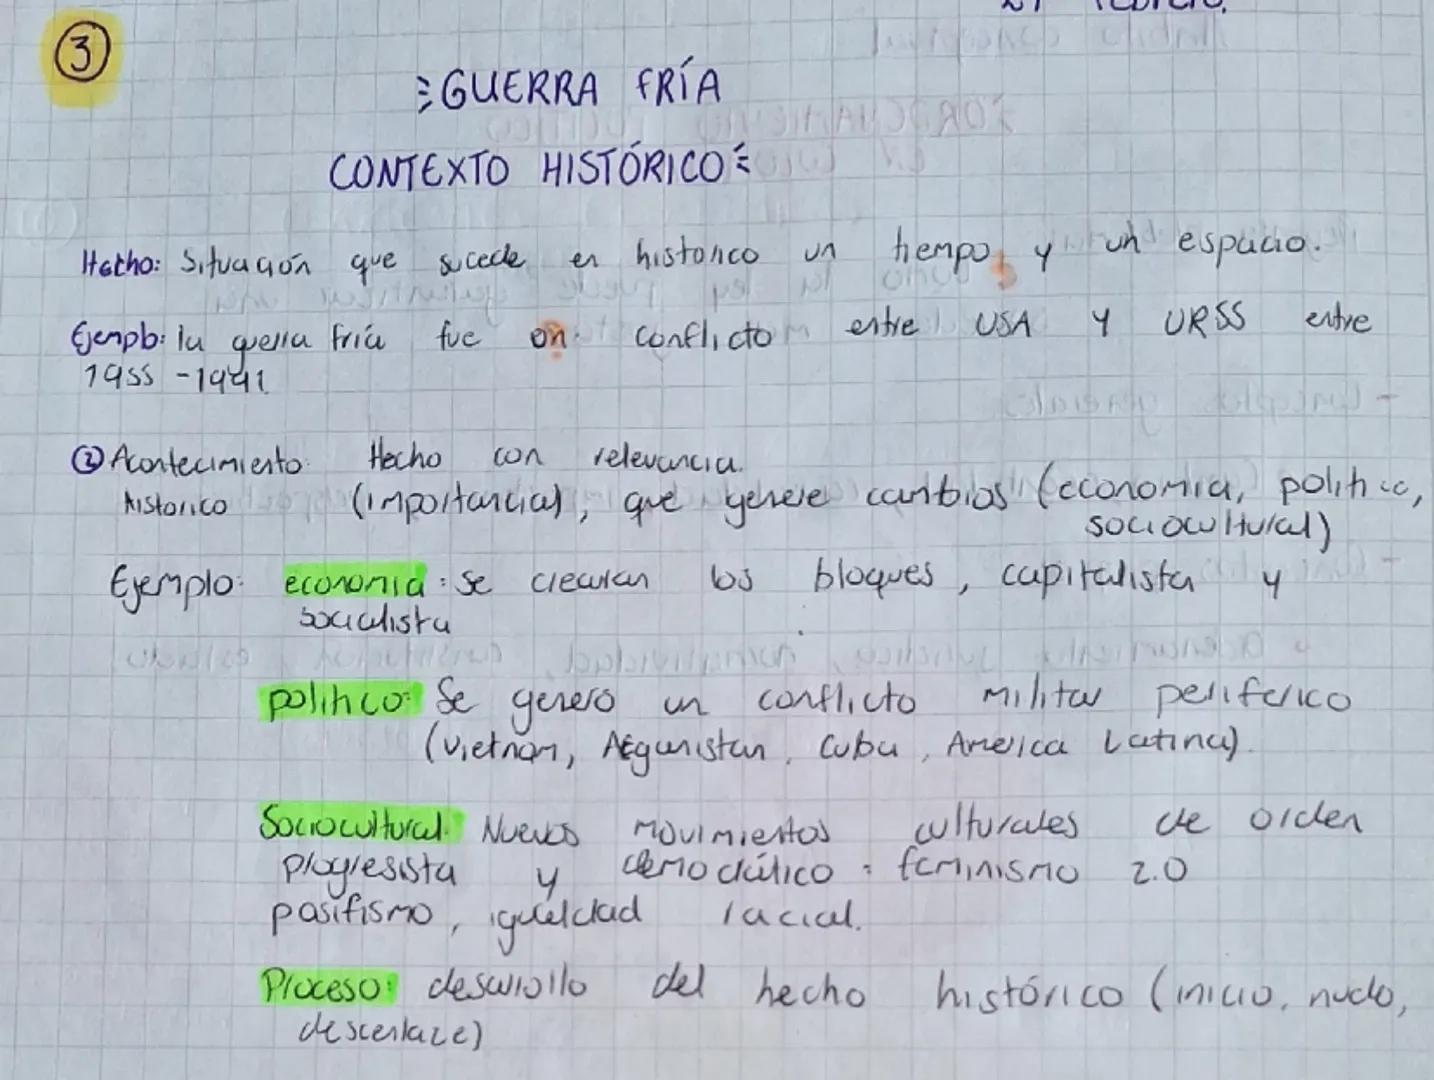 3
GUERRA FRÍA
CONTEXTO HISTÓRICO
Hecho: Situación que sucede en historico un tiempo y un espacio.
Ejemplo: la guerra fría fue en conflicto entre USA y URSS entre
1955 - 1991
② Acontecimiento Hecho con relevancia.
historico (importancia), que genere cambios (economia, politico,
sociocultural)
Ejemplo: economia: Se crearan los bloques, capitalista y
socialista
politico: Se genero un conflicto militar periferico
(Vietnam, Afganistan, Cuba, America Latina).
Sociocultural: Nuevos movimientos culturales de orden
progresista y democrático: feminismo 2.0
pasifismo, igualdad racial.
Proceso: desarrollo del hecho histórico (inicio, nudo,
descenlaze)